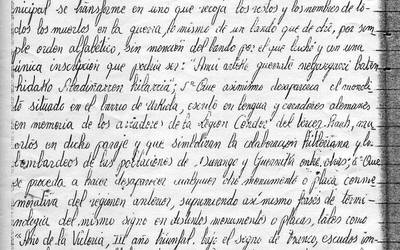 nicipal se transforme en uno que recoja los restos y los nombres de to-
dos los muertos en la guerra, lo mismo de un bando que de otro, por sim-
ple orden alfabético, sin mención del bando por el que luchó y con una
única inscripción que podría ser: "Ami arteko guerrate
hildako Otxandiarren hilarria"; 5º Que asimismo desaparezca el monoli-
to situado en el barrio de Urkiola, escrito en lengua y caracteres alemanes
en memoria de los aviadores de la Legion Condor del tercer Reich, mu-
ertos en dicho paraje y que simbolizan la colaboración hitleriana y los
bombardeos de las poblaciones de Durango y Guernika entre otras; 6º Que
se proceda a hacer desaparecer cualquier otro monumento o placa conme-
morativa del régimen anterior, suprimiendo así mismo frases de termi-
nología del mismo signo en distintos monumentos o placas, tales como
"Año de la Victoria, III año triunfal. bajo el signo de Franco, escudos im-